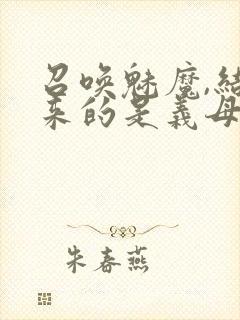 召唤魅魔,结
来的是義母
朱春燕